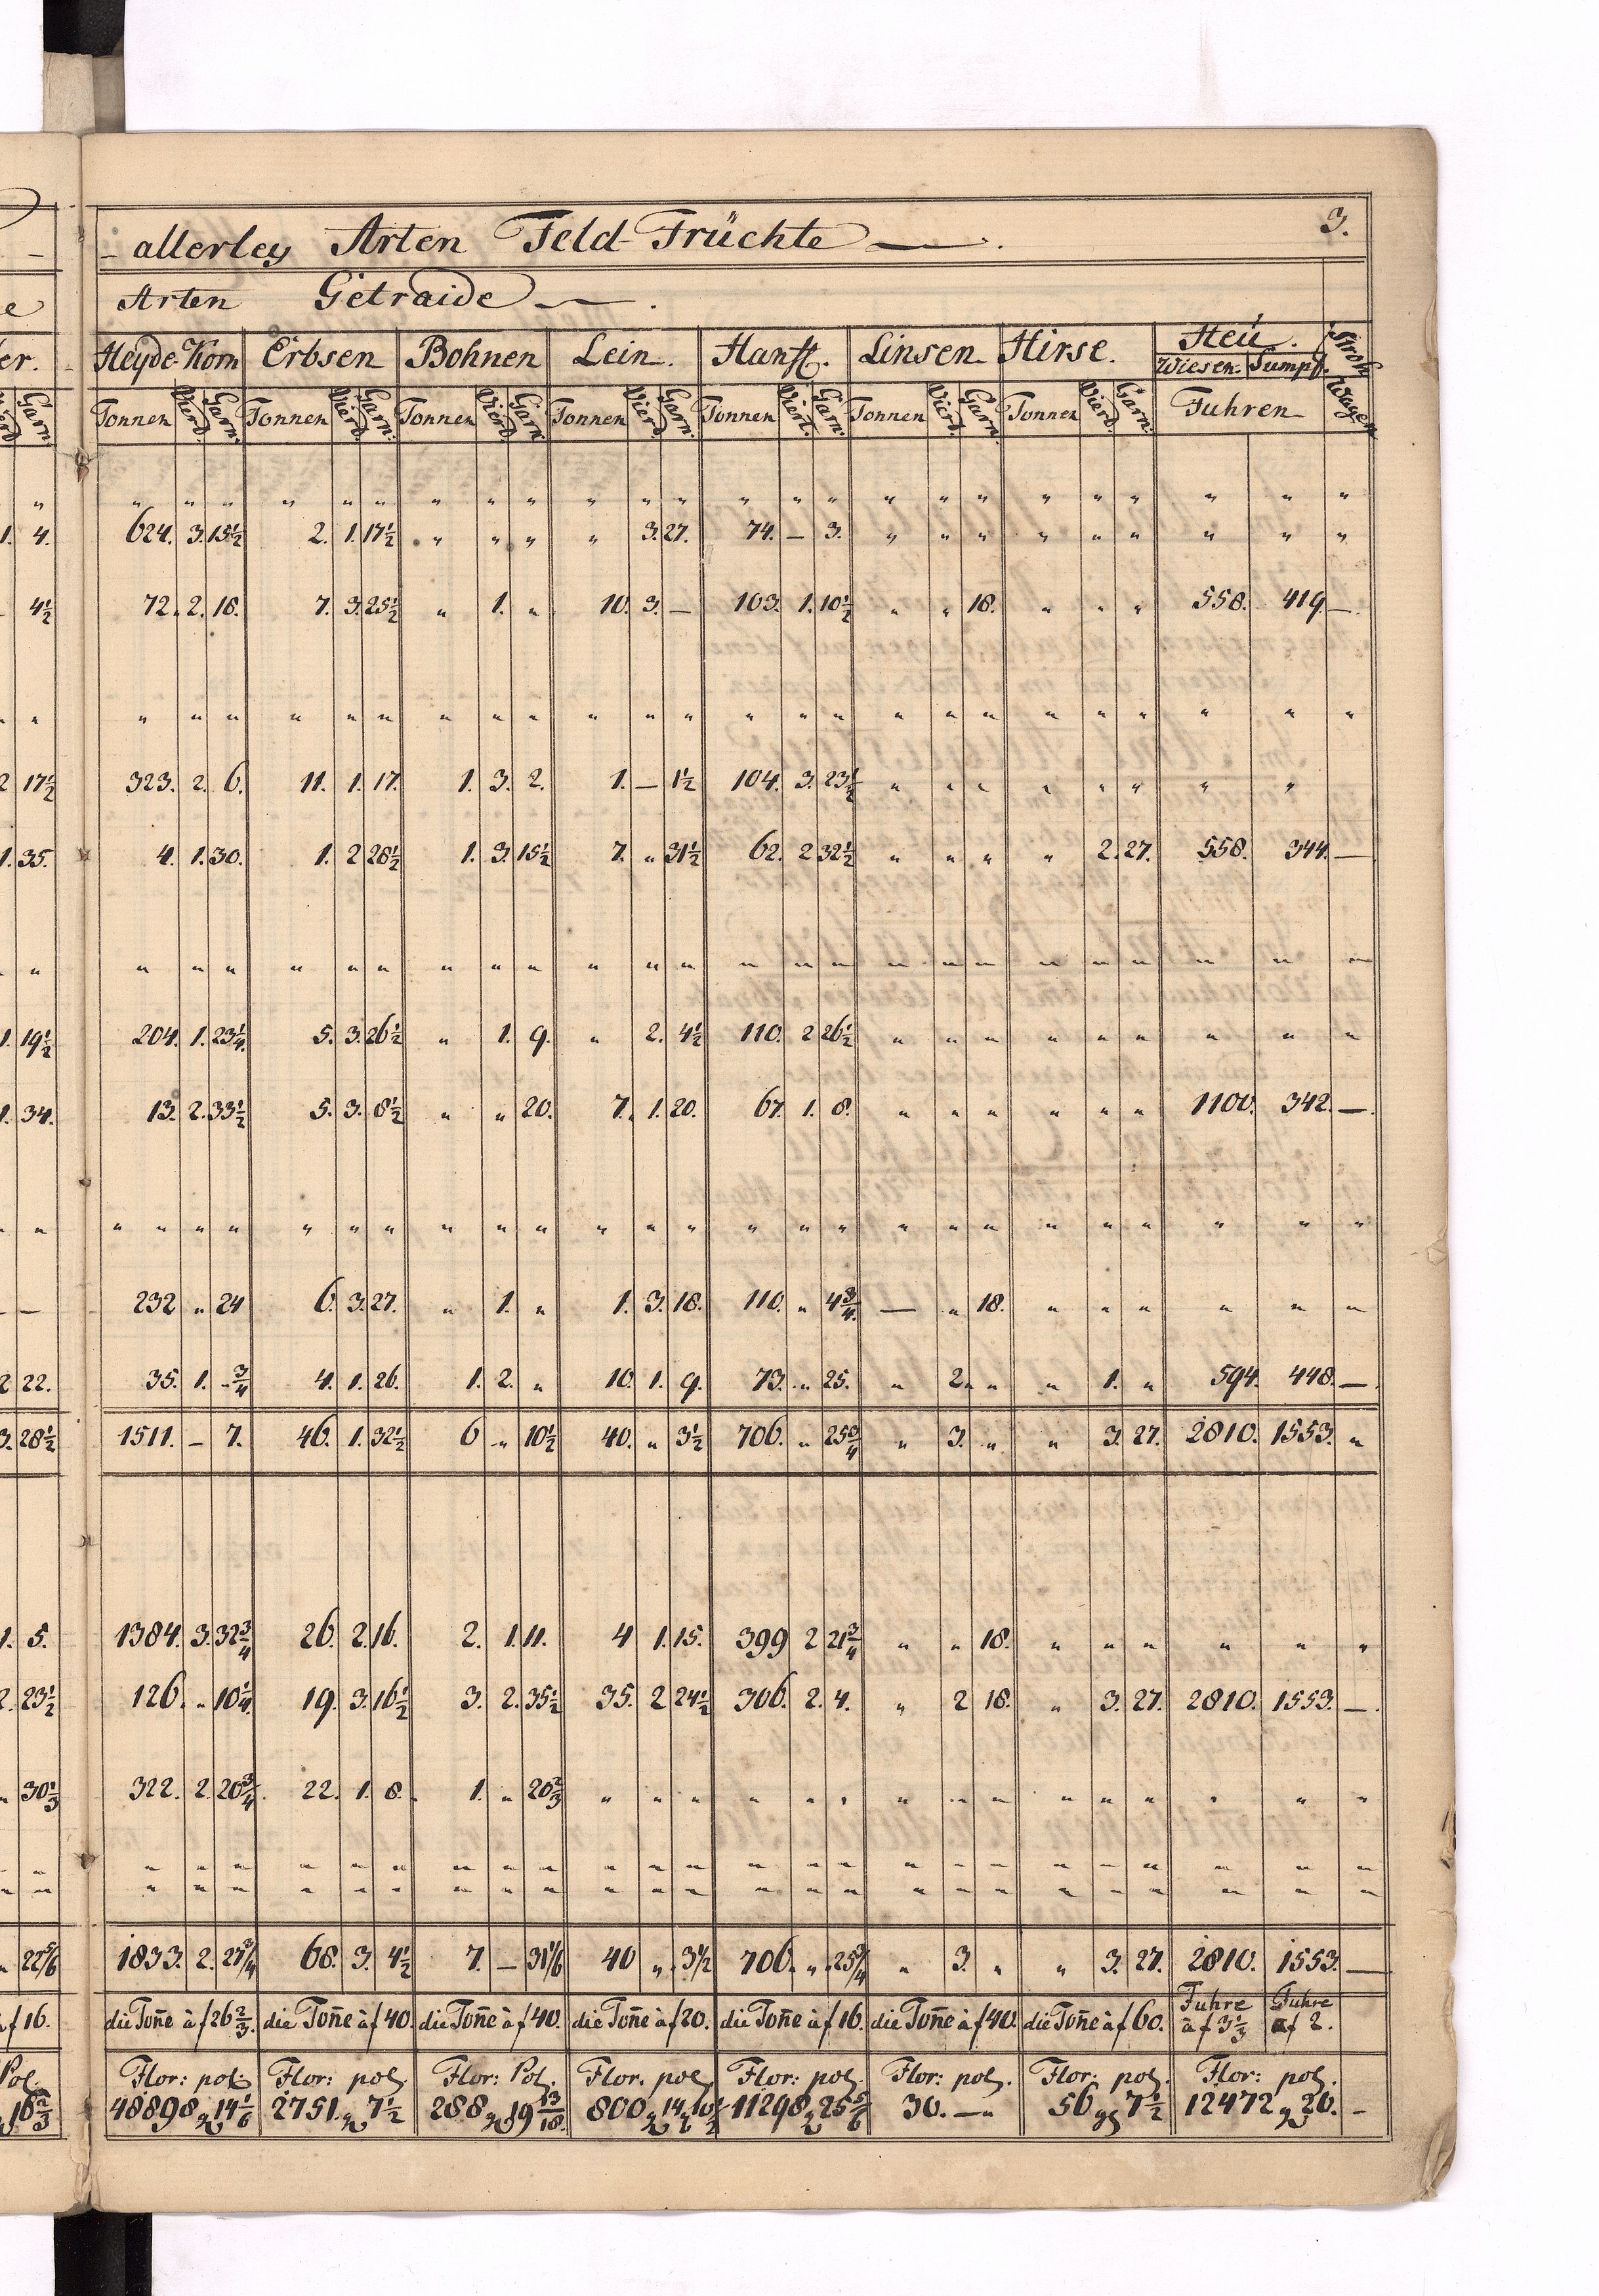 3.
allerley Arten Feld-Früchte —.
Arten Getraide — .
er. Heyde-Korn Erbsen Bohnen Lein. Hanft. Linsen Hirse. Heü. Stroh
Wiesen. Sumpf.
Garn. Tonnen Vierd. Garn. Tonnen Vierd. Garn. Tonnen Vierd. Garn. Tonnen Vierd. Garn. Tonnen Viert. Garn. Tonnen Vierd. Garn. Tonnen Vierd. Garn. Fuhren Wagen
" " " " " " " " " " " " " " " " " " " " " " " " "
1. 4. 624. 3. 15½ 2. 1. 17½ " " " " 3. 27. 74. — 3. " " " " " " " " "
– 4½ 72. 2. 18. 7. 3. 25½ " 1. " 10. 3. — 103. 1. 10½ " " 18. " " " 558. 419. —.
" " " " " " " " " " " " " " " " " " " " " " " " " "
2 17½ 323. 2. 6. 11. 1. 17. 1. 3. 2. 1. — 1½ 104. 3. 23½ " " " " " " " "
1. 35. 4. 1. 30. 1. 2 28½ 1. 3. 15½ 7. " 31½ 62. 2 32½ " " " " 2. 27. 558. 344. —
" " " " " " " " " " " " " " " " " " " " " " " " " "
1. 19½ 204. 1. 23¼. 5. 3. 26½ " 1. 9. " 2. 4½ 110. 2 26½ " " " " " " " " "
1. 34. 13. 2. 33½ 5. 3. 8½ " " 20. 7. 1. 20. 67. 1. 8. " " " " " " 1100. 342. —.
" " " " " " " " " " " " " " " " " " " " " " " " " " "
— — 232 " 24 6. 3. 27. " 1. " 1. 3. 18. 110. " 4¾. — " 18. " " " " " "
2 22. 35. 1. -¾ 4. 1. 26. 1. 2. " 10. 1. 9. 73. " 25. " 2. " " 1. " 594. 448. —
3. 28½ 1511. — 7. 46. 1. 32½ 6 " 10½ 40. " 3½ 706. " 25¾ " 3. " " 3. 27. 2810. 1553. "
1. 5. 1384. 3. 32¾ 26. 2. 16. 2. 1. 11. 4 1. 15. 399 2 21¾ " " 18. " " " " " "
2. 23½ 126. " 10¼ 19. 3. 16½ 3. 2. 35½ 35. 2 24½ 306. 2. 4. " 2 18. " 3. 27. 2810. 1553. —.
" 30⅓ 322. 2. 20¾. 22. 1. 8. 1. " 20⅔ " " " " " " " " " " " " " " "
" " " " " " " " " " " " " " " " " " " " " " " " " "
" " " " " " " " " " " " " " " " " " " " " " " " " "
" 22⅚ 1833. 2. 27¾ 68. 3. 4½ 7. — 31⅙ 40 " 3½ 706. " 25¾ " 3. " " 3. 27. 2810. 1553. —
f 16. die Toñe à f 26⅔. die Toñe à f 40. die Toñe à f 40. die Toñe à f 20. die Toñe à f 16. die Toñe à f 40. die Toñe à f 60. Fuhre à f 3⅓ Fuhre af 2.
Pol. Flor: pol. Flor: pol. Flor: Pol. Flor. pol. Flor: pol. Flor: pol. Flor: pol. Flor: pol.
16⅔ 48898 14⅙ 2751. 7½ 288 19 13/18. 800 14 11298 25⅚ 30. — " 56 gg 7½ 12472 20. –